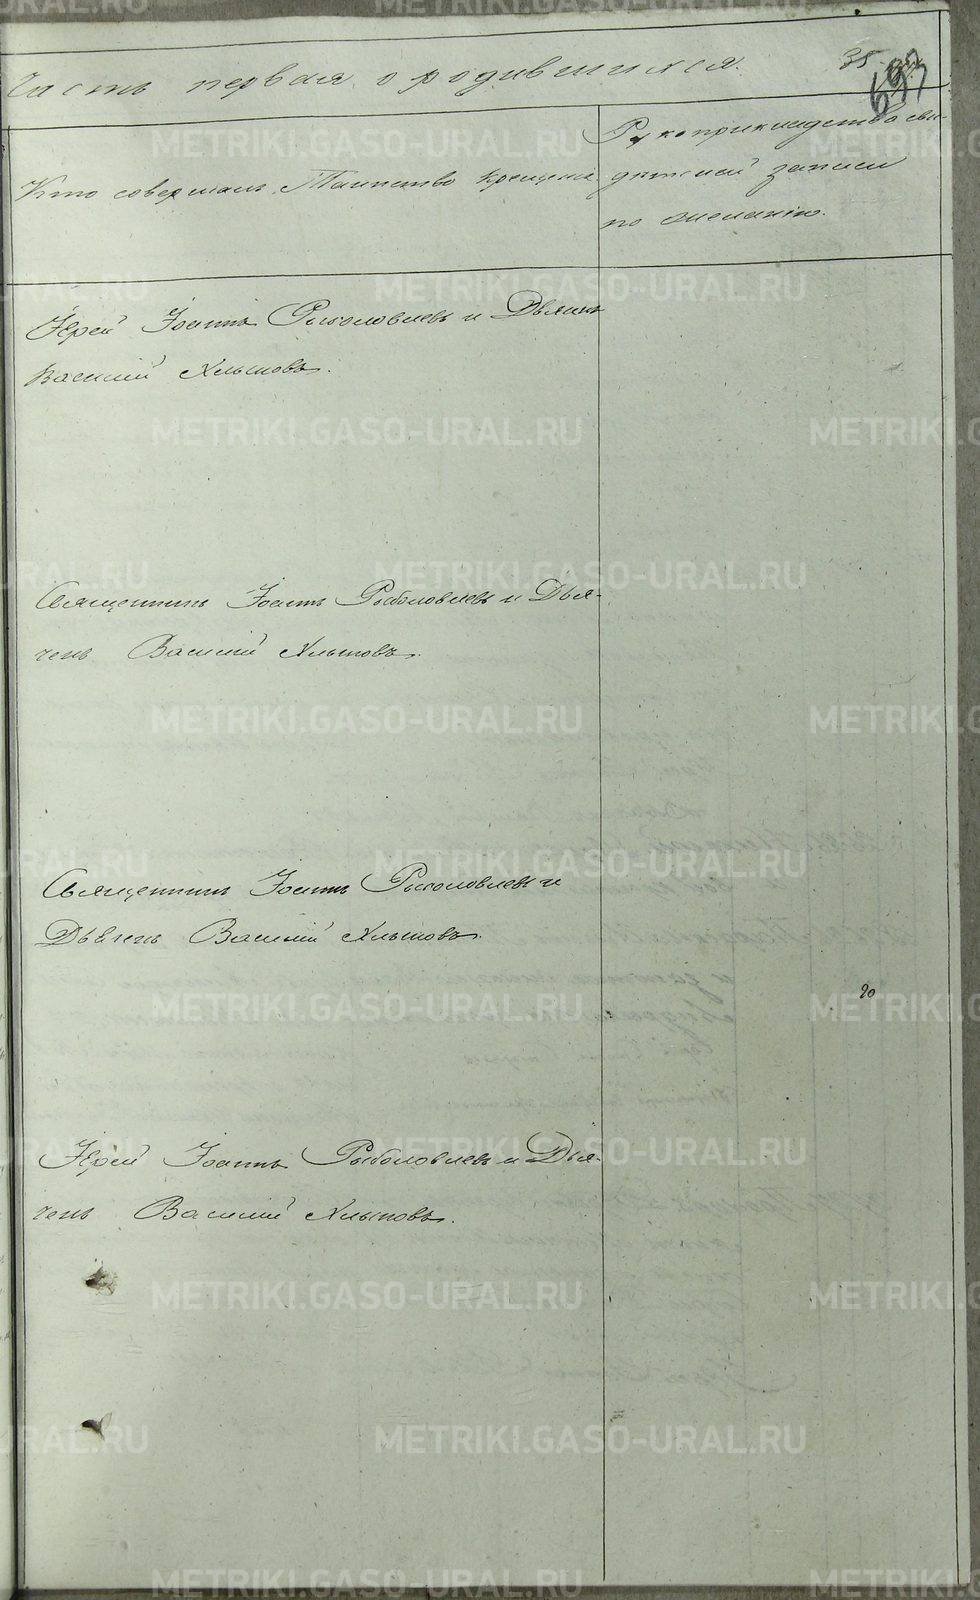 Часть первая, о родившихся.
35
697
Кто совершалъ Таинство крещенія
Рукоприкладство сви-
дѣтелей записи
по желанію.
Іерей Іоаннъ Рыболовлевъ и Дьячекъ
Василій Хлыновъ.
Священникъ Іоаннъ Рыболовлевъ и Дья-
чекъ Василій Хлыновъ.
Священникъ Іоаннъ Рыболовлевъ и
Дьячекъ Василій Хлыновъ.
Іерей Іоаннъ Рыболовлевъ и Дья-
чекъ Василій Хлыновъ.
METRIKI.GASO-URAL.RU